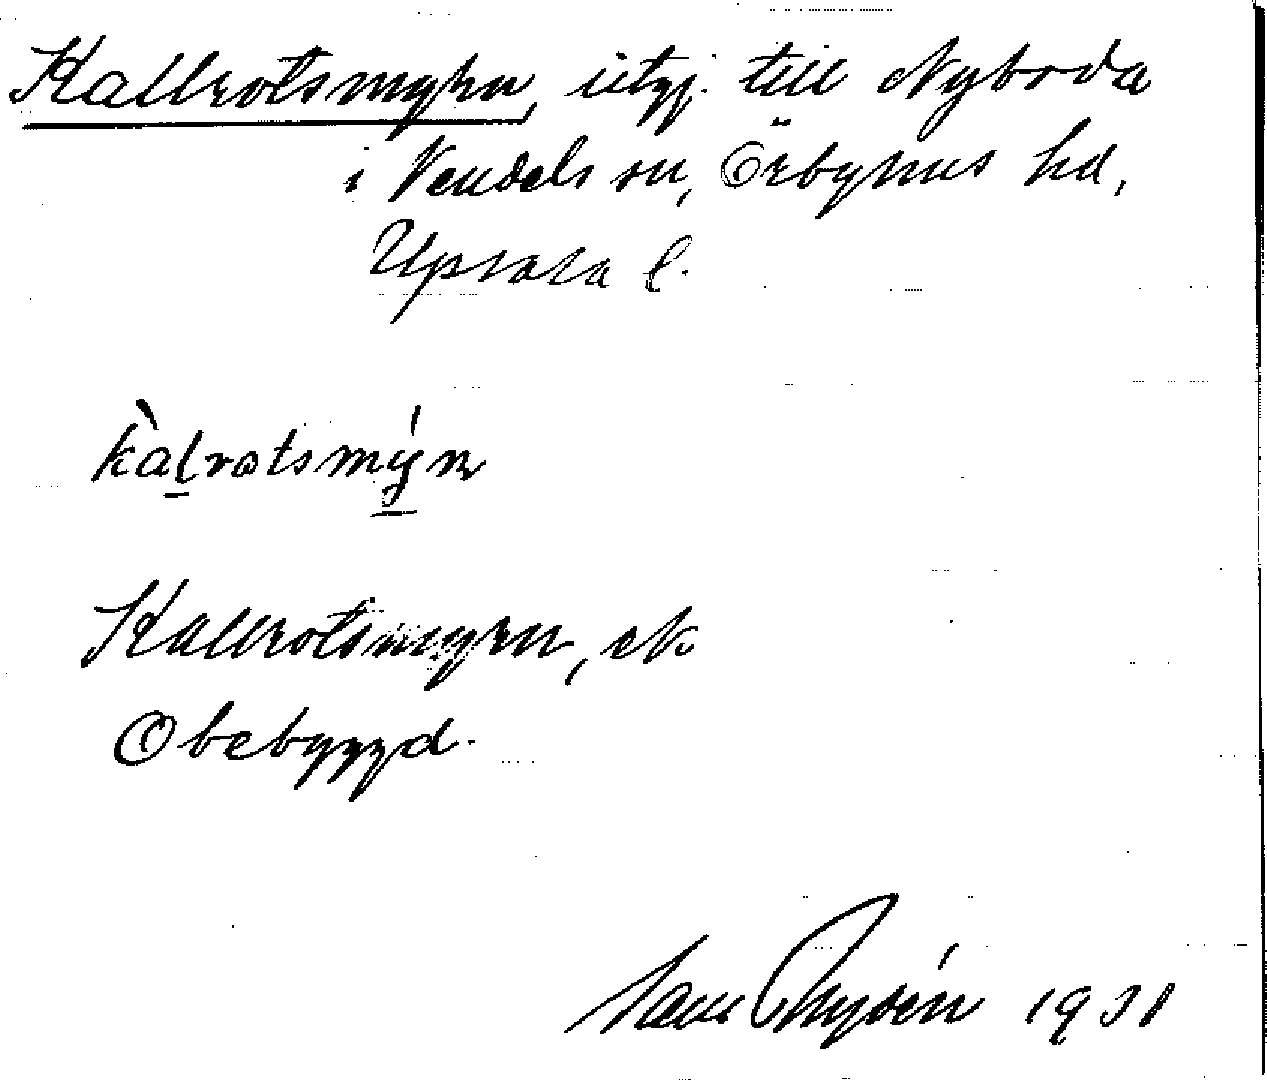 Kallrotsmyrn, utgj. till Nyboda
i Vendels sn, Örbyhus hd,
Upsala l.
kàlrotsmýn
Kallrotsmyrn, ek
Obebyggd.
Rydén 1931